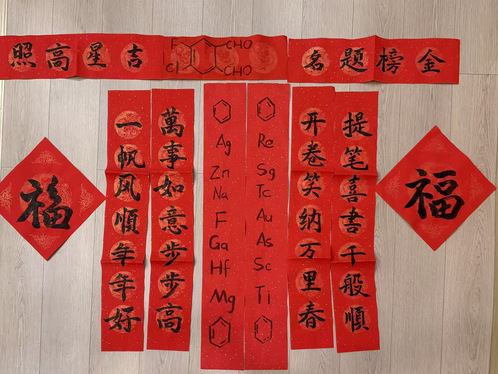 金榜題名
F
CHO
Cl
CHO
吉星高照
福
提笔喜吾千般順
开卷笑纳万里春
Re
Sg
Tc
Au
As
Sc
Ti
Ag
Zn
Na
F
Ga
Hf
Mg
萬事如意步步高
一帆风順年年好
福